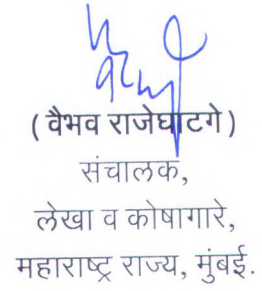 ( वैभव राजेघाटगे )
संचालक,
लेखा व कोषागारे,
महाराष्ट्र राज्य, मुंबई.